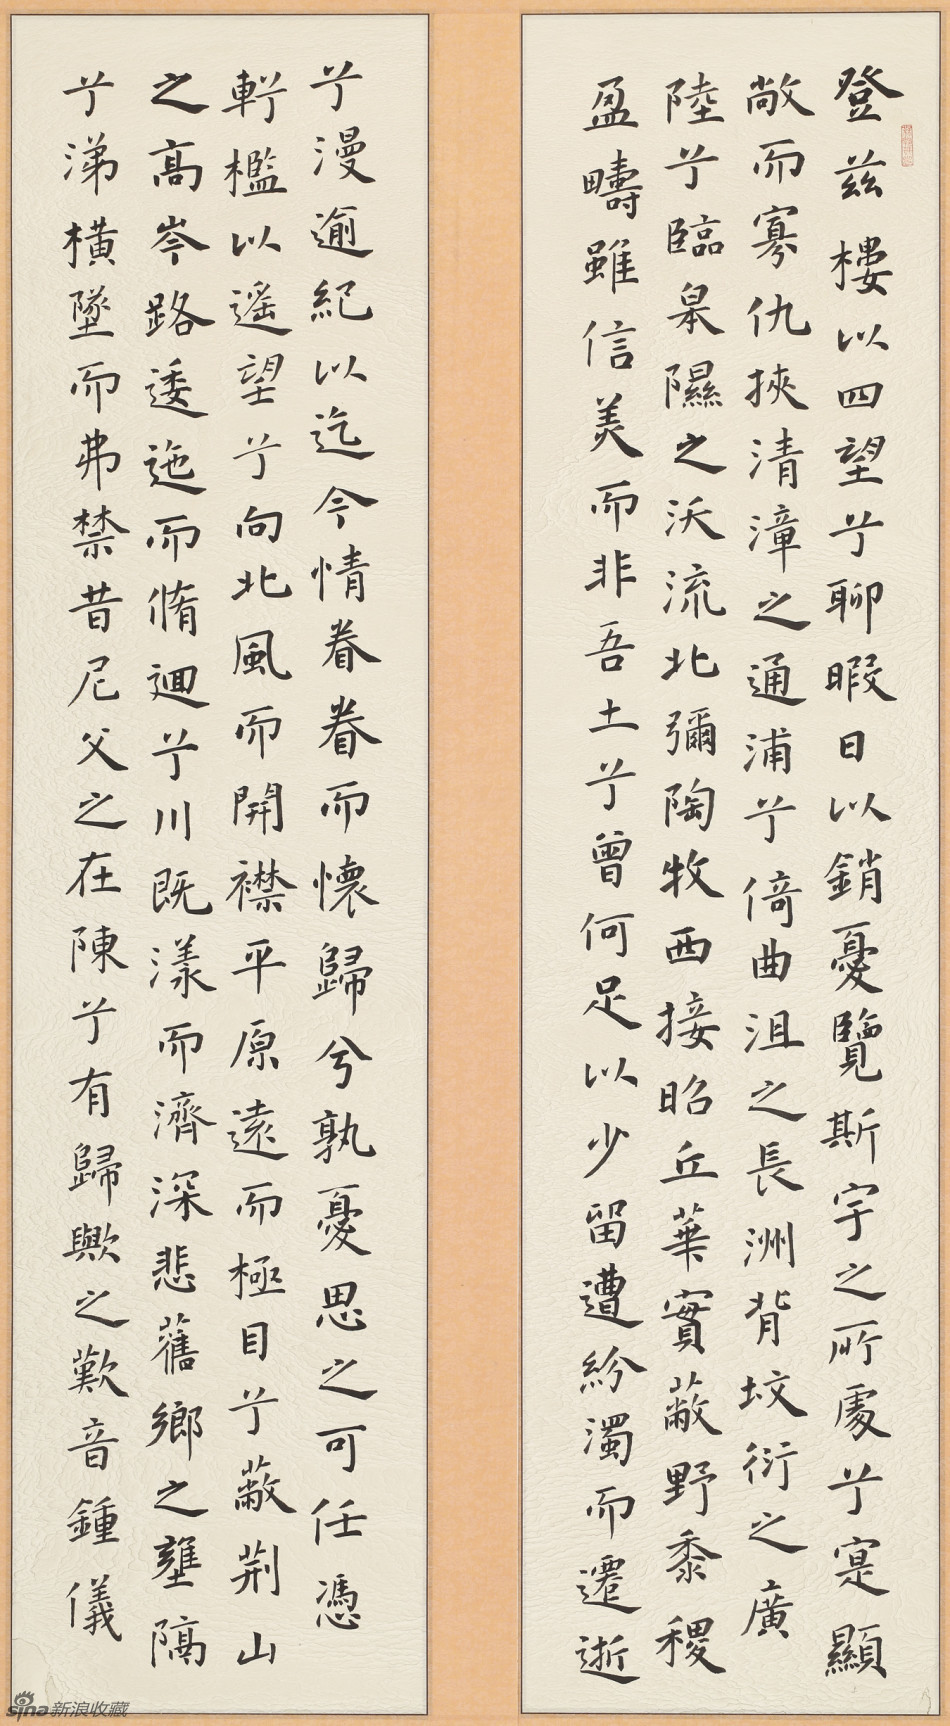 登兹樓以四望兮聊暇日以銷憂覽斯宇之所處兮寔顯
敞而寡仇挾清漳之通浦兮倚曲沮之長洲背坟衍之廣
陸兮臨皋隰之沃流北彌陶牧西接昭丘華實蔽野黍稷
盈疇雖信美而非吾土兮曾何足以少留遭紛濁而遷逝
兮漫逾紀以迄今情眷眷而懷歸兮孰憂思之可任憑
軒檻以遥望兮向北風而開襟平原遠而極目兮蔽荆山
之高岑路逶迤而脩迴兮川既漾而濟深悲舊鄉之壅隔
兮涕橫墜而弗禁昔尼父之在陳兮有歸歟之歎音鍾儀
sina新浪收藏